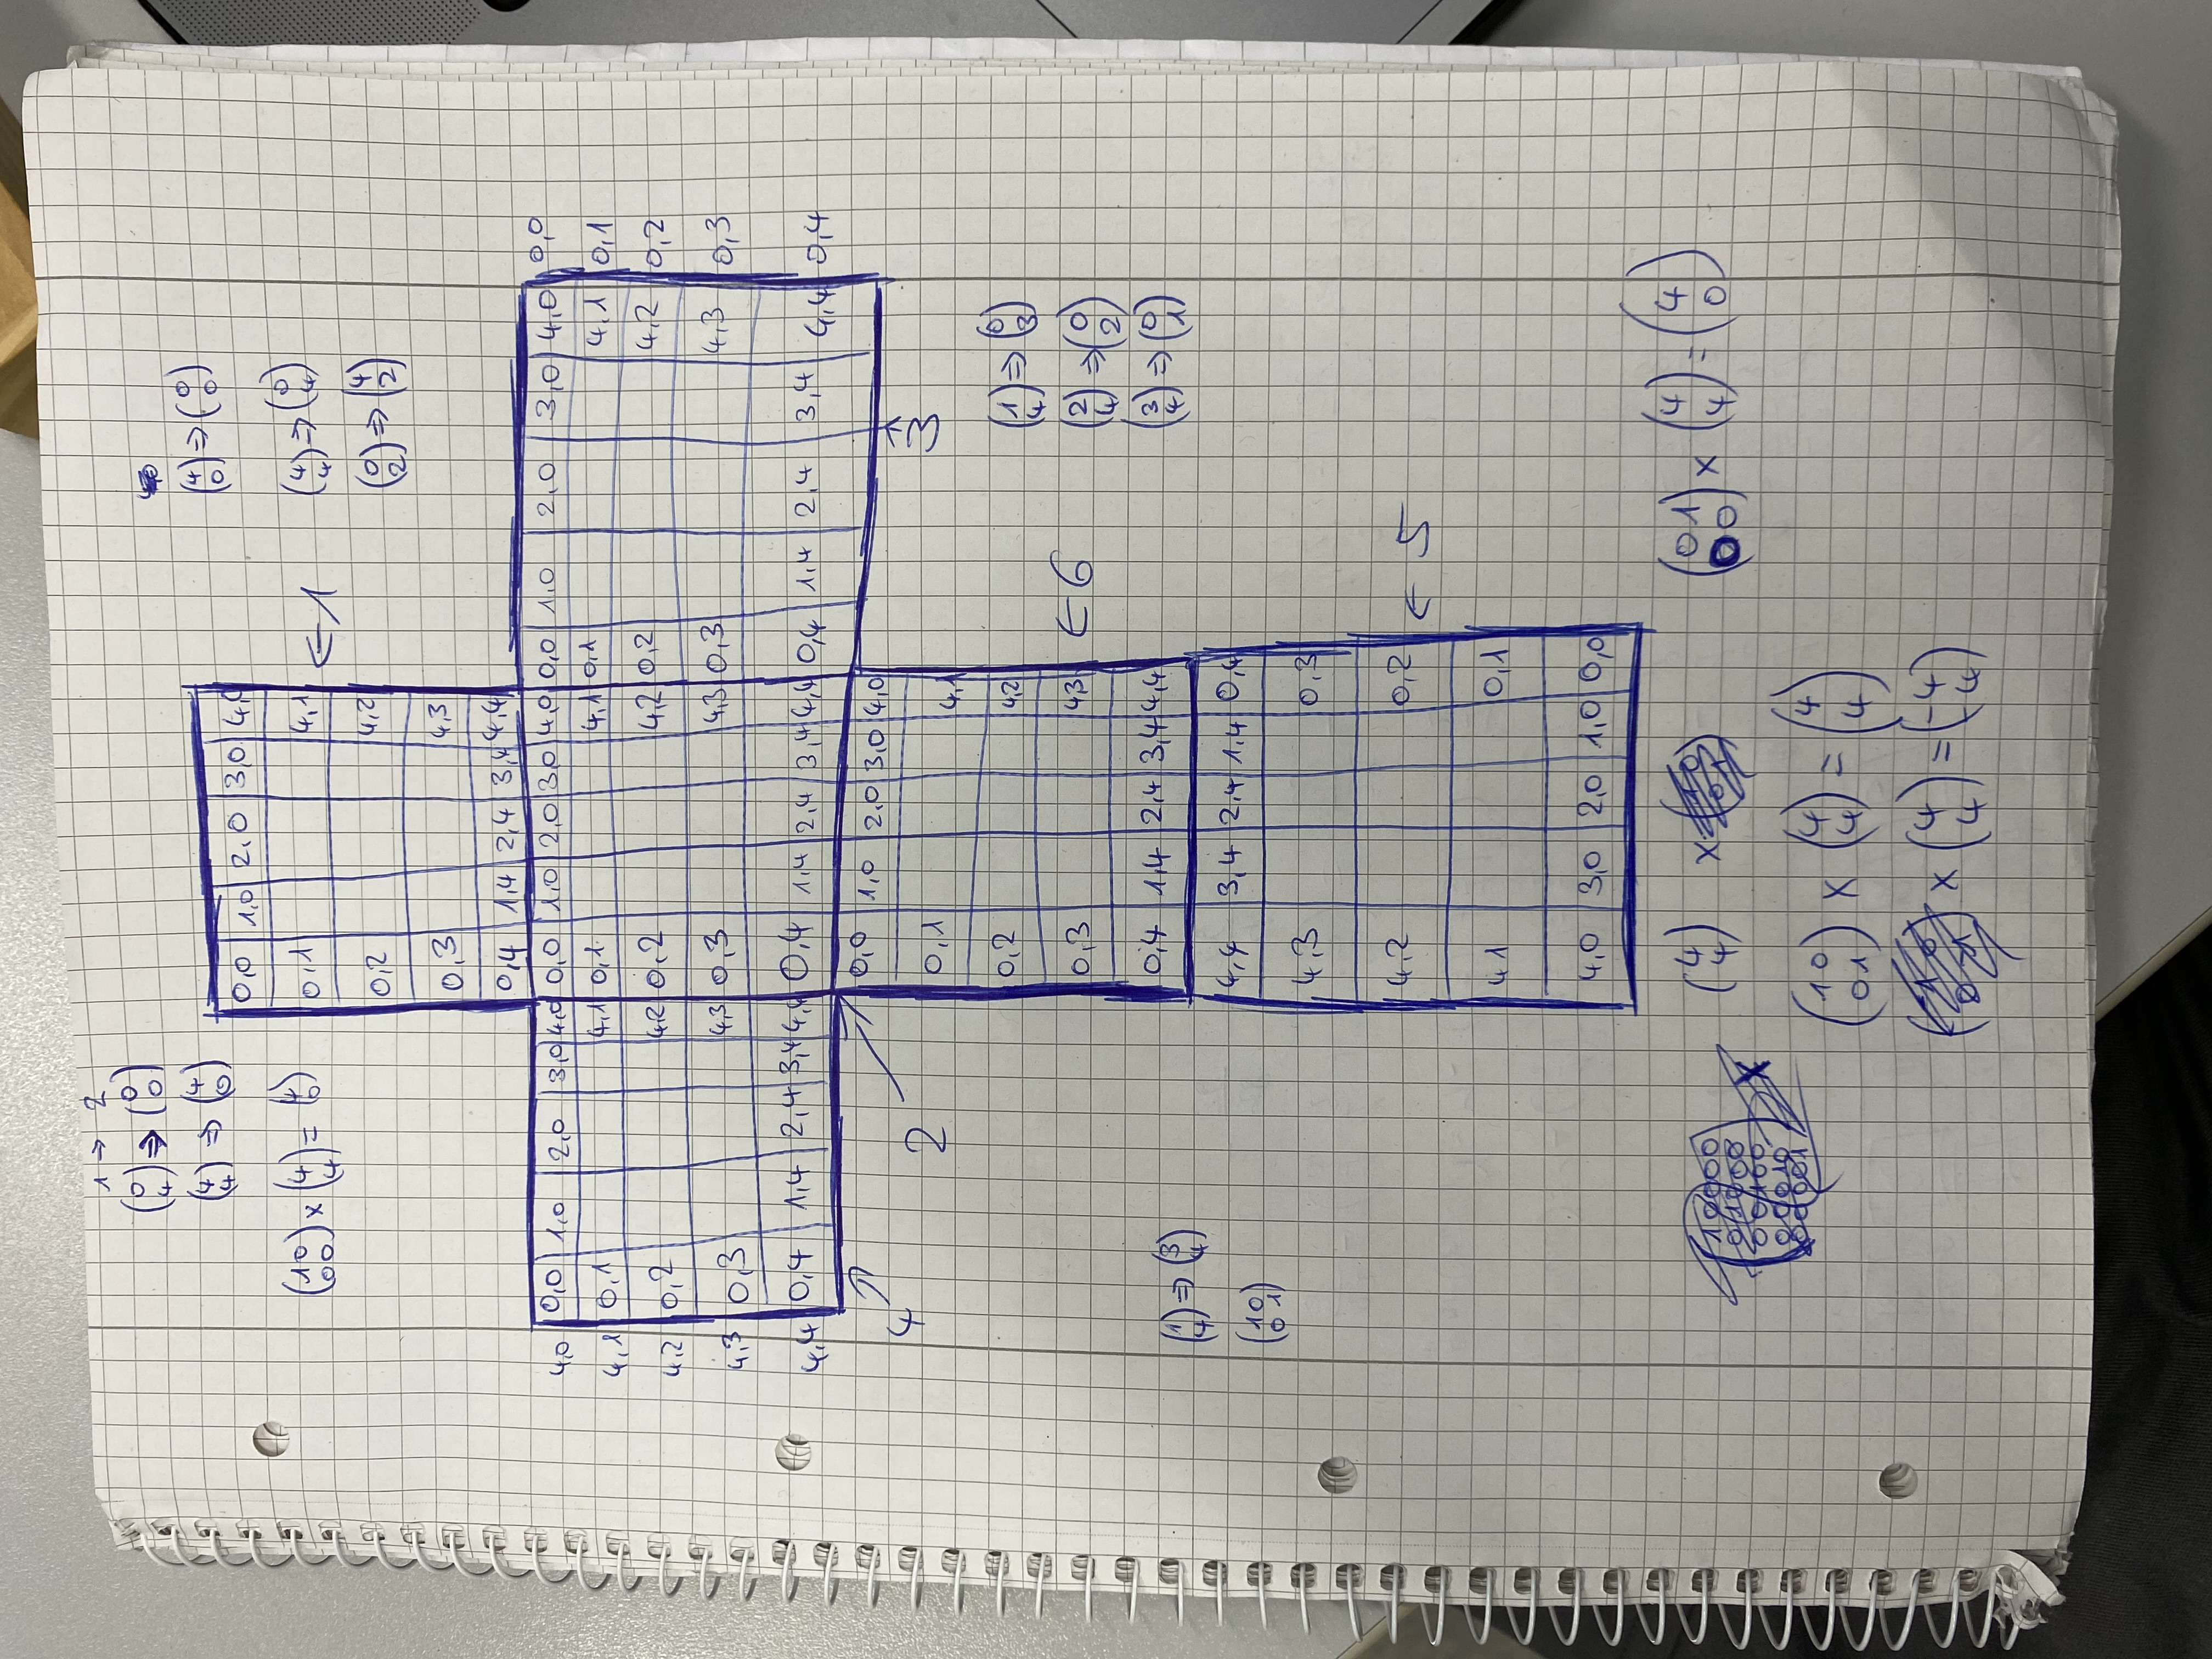 1 → 2
(0 4) ⇒ (0 0)
(4 4) ⇒ (4 0)
(1 0 0 0) × (4 4) = (4 0)
(4 0) ⇒ (0 0)
(4 4) ⇒ (0 4)
(0 2) ⇒ (4 2)
0,0 1,0 2,0 3,0 4,0
0,1 4,1
← 1
0,2 4,2
0,3 4,3
0,4 1,4 2,4 3,4 4,4
4,0 0,0 1,0 2,0 3,0 4,0 0,0 1,0 2,0 3,0 4,0 0,0 1,0 2,0 3,0 4,0 0,0
4,1 0,1 4,1 0,1 4,1 0,1 4,1 0,1
4,2 0,2 4,2 0,2 4,2 0,2 4,2 0,2
4,3 0,3 4,3 0,3 4,3 0,3 4,3 0,3
4,4 0,4 1,4 2,4 3,4 4,4 0,4 1,4 2,4 3,4 4,4 0,4 1,4 2,4 3,4 4,4 0,4
4 2 3
0,0 1,0 2,0 3,0 4,0
0,1 4,1
0,2 4,2
0,3 4,3
← 6
0,4 1,4 2,4 3,4 4,4
(1 4) ⇒ (0 3)
(2 4) ⇒ (0 2)
(3 4) ⇒ (0 1)
(1 4) ⇒ (3 4)
(1 0 0 1)
4,4 3,4 2,4 1,4 0,4
4,3 0,3
4,2 0,2
← 5
4 1 0,1
4,0 3,0 2,0 1,0 0,0
1 0 0 0 0
0 1 0 0 0
0 0 1 0 0
0 0 0 1 0
0 0 0 0 1
×
(4 4) ×
(0 1 0 0) × (4 4) = (4 0)
(1 0 0 1) × (4 4) = (4 4)
(-1 0 0 -1) × (4 4) = (-4 -4)